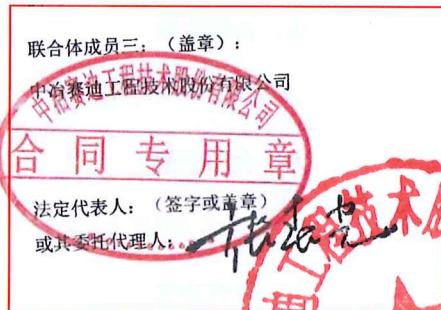 联合体成员三：（盖章）：
中冶赛迪工程技术股份有限公司
中冶赛迪工程技术股份有限公司
合同专用章
法定代表人：（签字或盖章）
或其委托代理人：
迪工程技术股